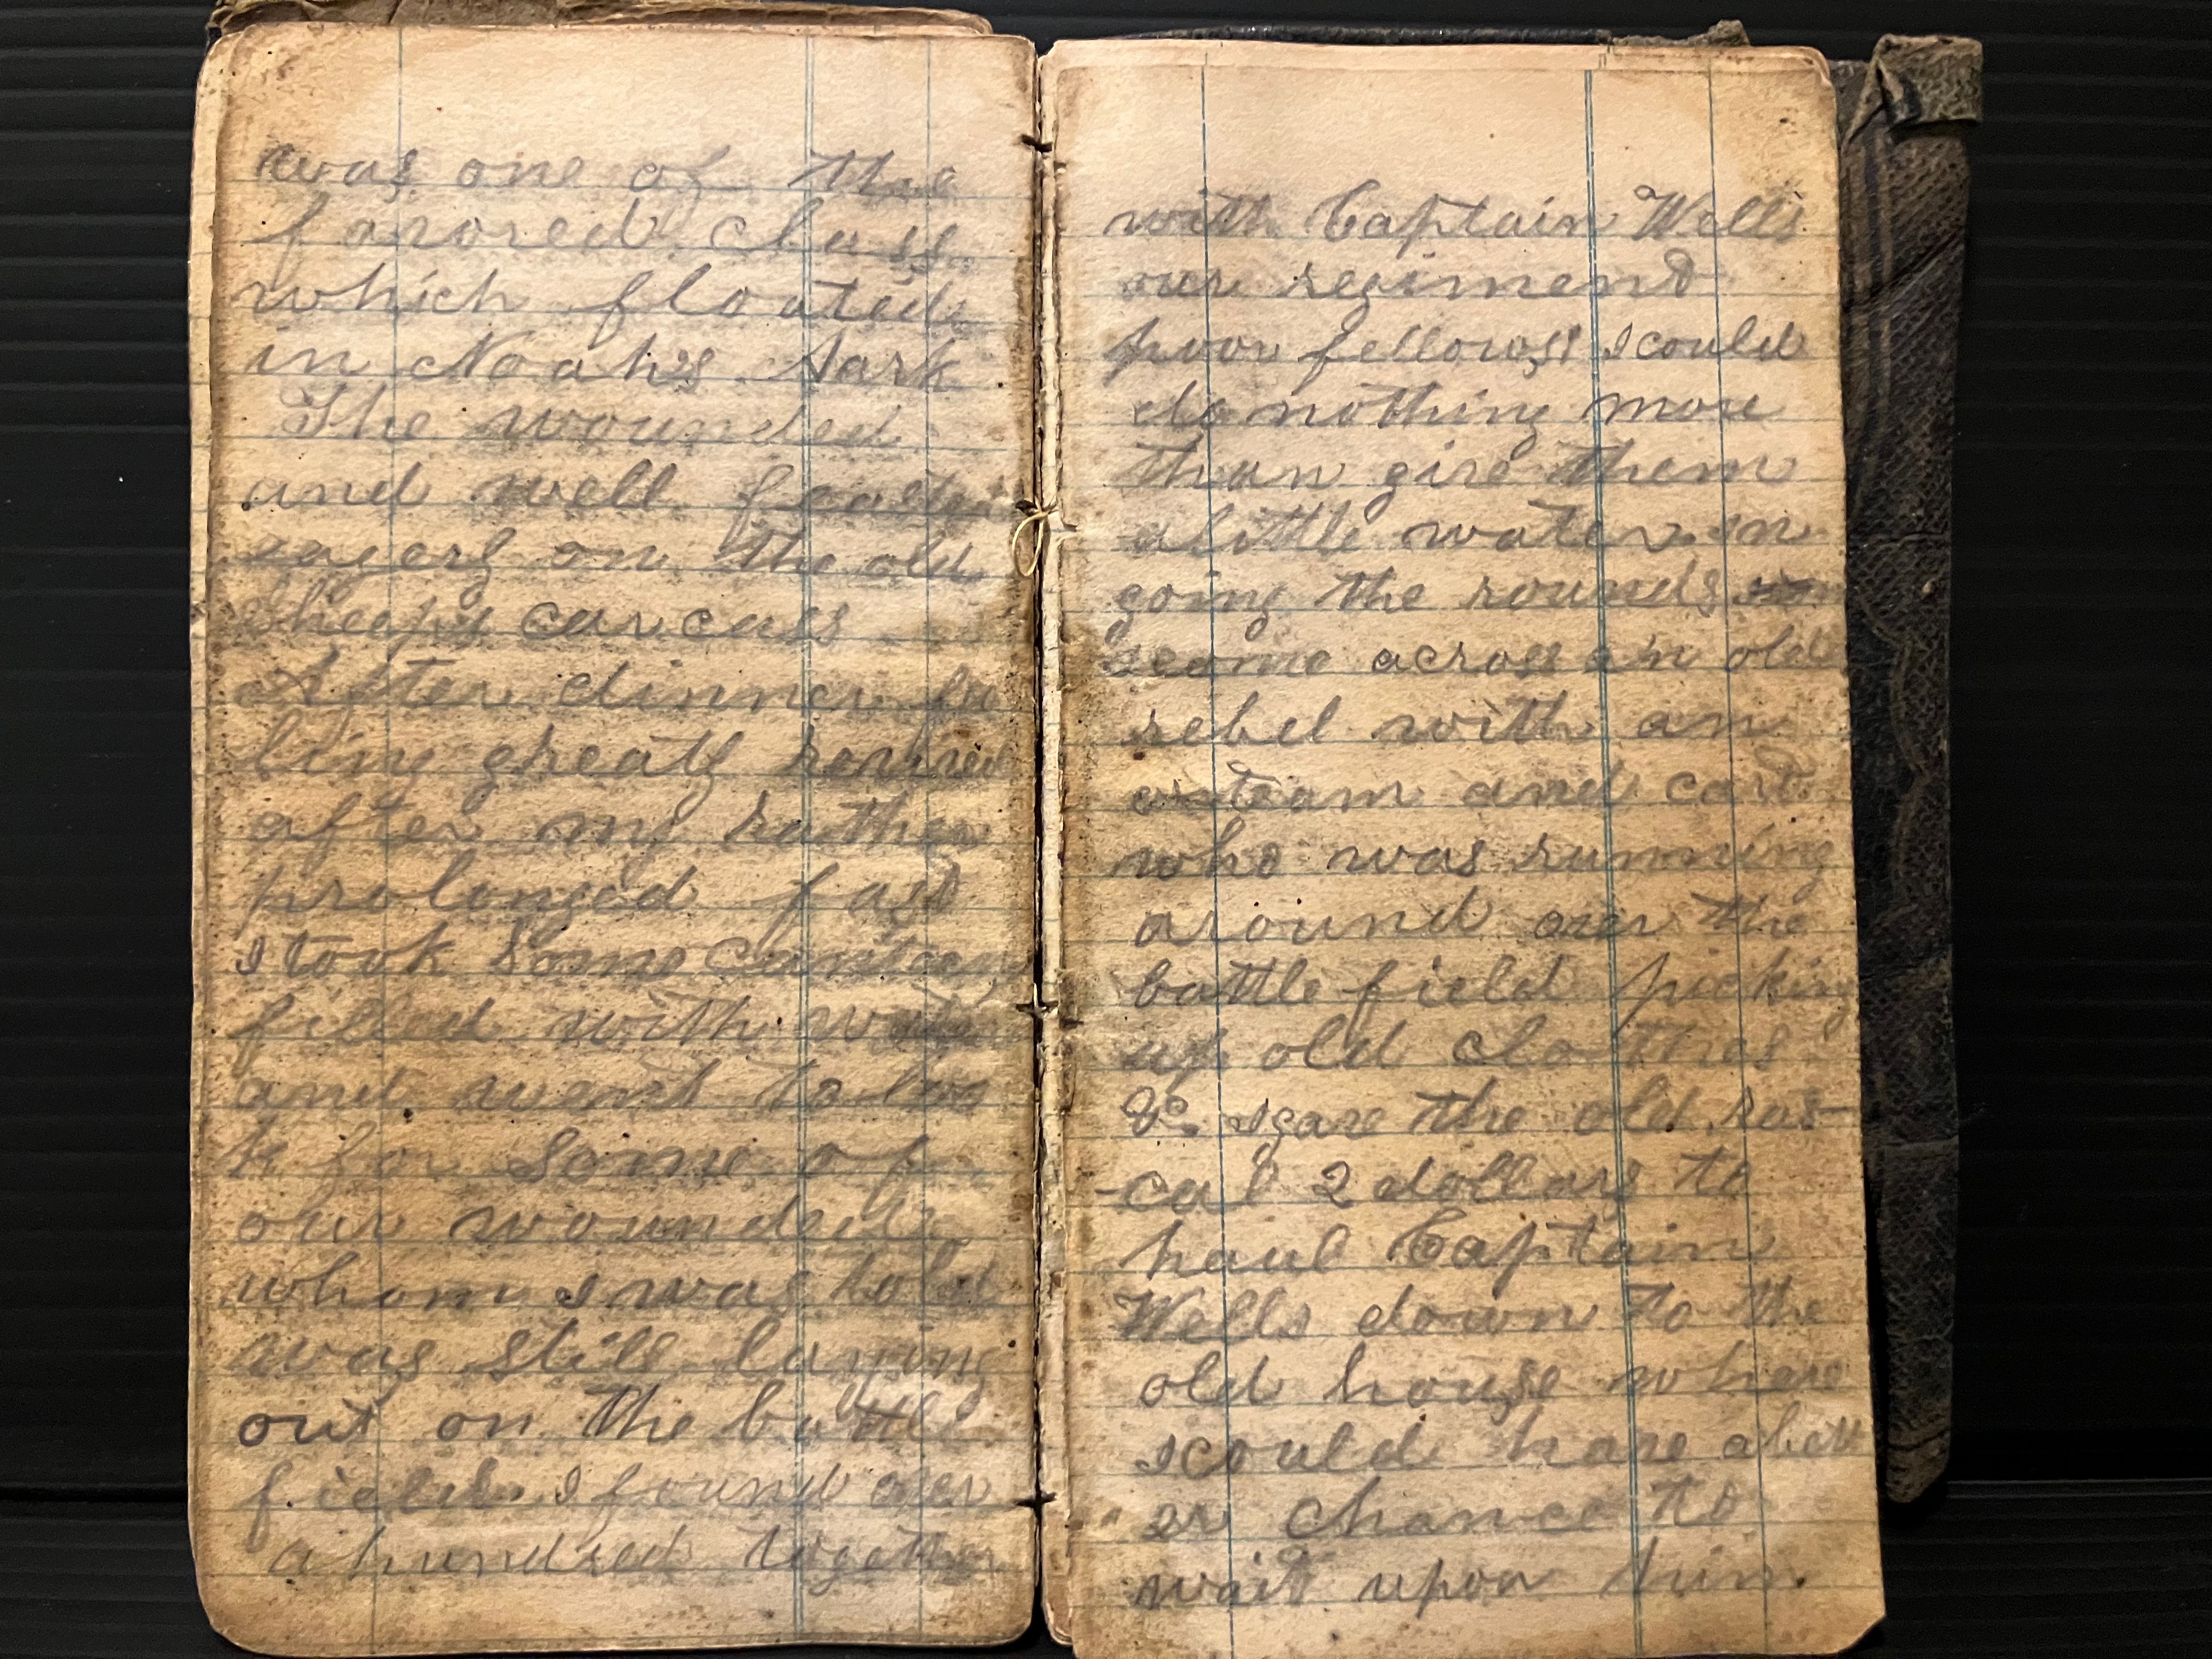 was one of the
favored class
which floated
in Noah's Aark
The wounded
and well feasted
eagerly on the old
Sheaps carcass
After dinner fee
ling greatly revived
after my rather
prolonged fast
I took some canteens
filled with water
and went to loo
k for some of
our wounded
whom I was told
was still laying
out on the battle
field. I found over
a hundred together
with Captain Wells
our regiment
poor fellows I could
do nothing more
than give them
a little water. in
going the rounds
I come across an old
rebel with an
oxteam and cart
who was running
around over the
battle field picking
up old clothes
&c. I gave the old ras-
-cal 2 dollars to
haul Captain
Wells down to the
old house whare
I could have a bett
er chance to
wait upon him.